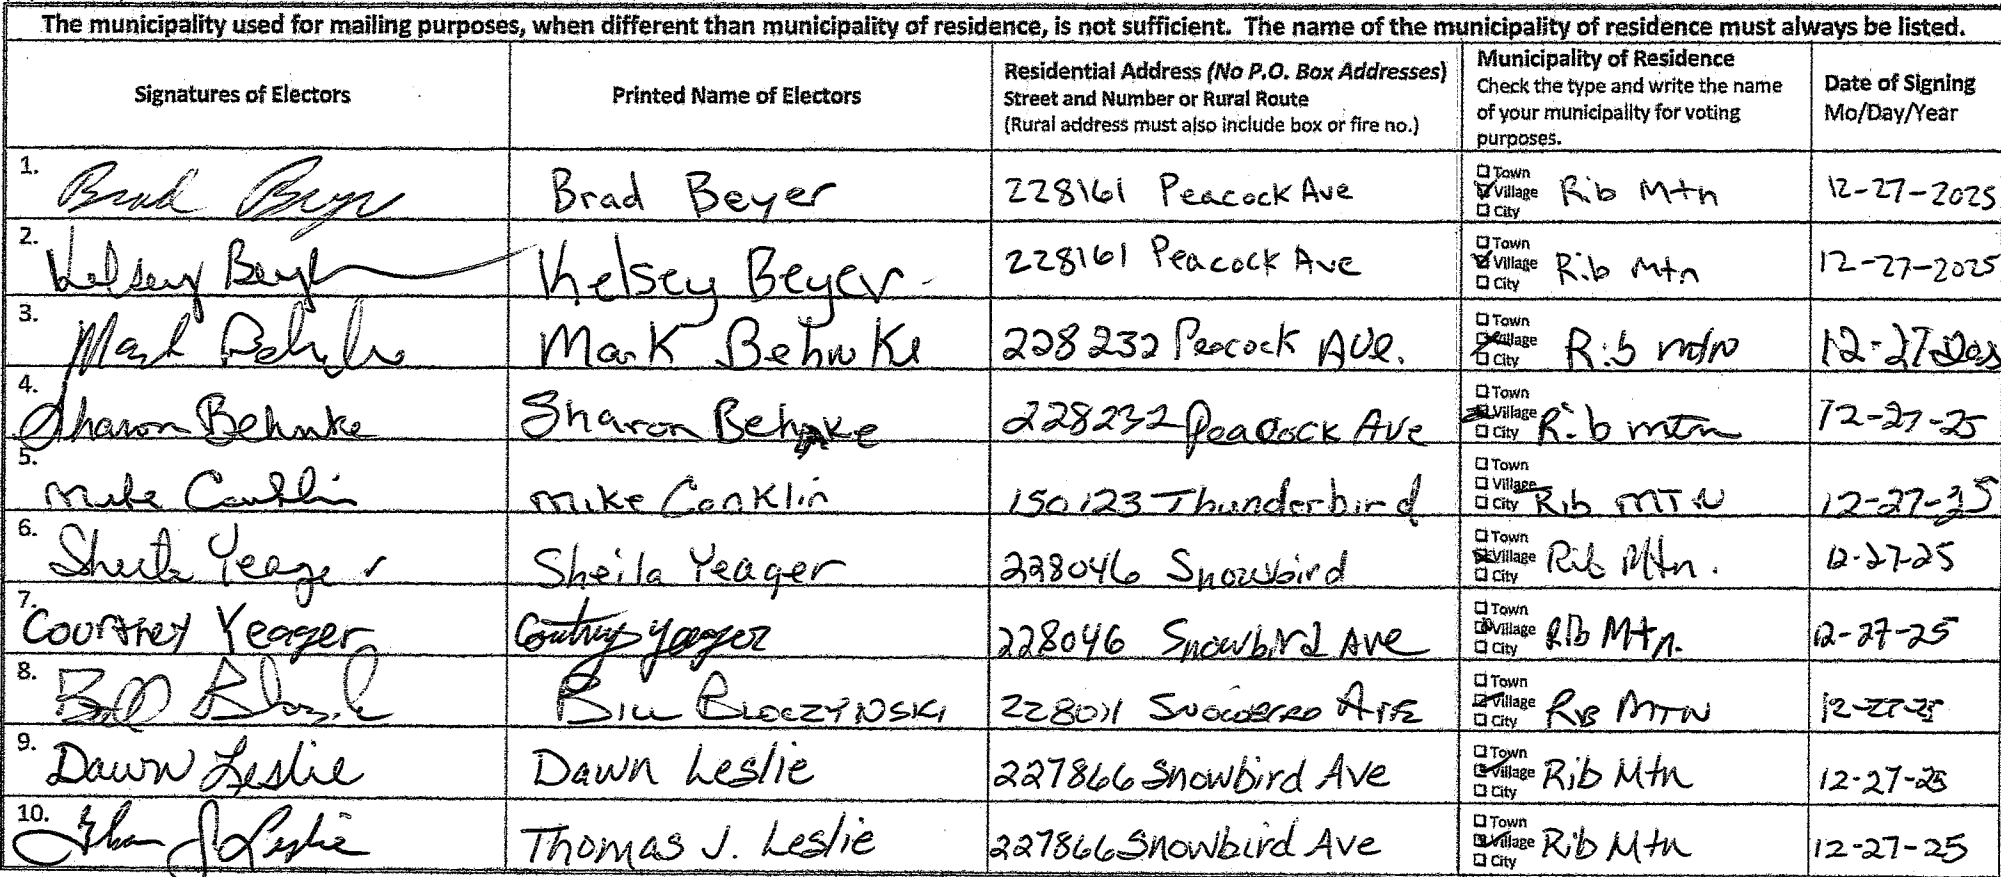 The municipality used for mailing purposes, when different than municipality of residence, is not sufficient. The name of the municipality of residence must always be listed.
Signatures of Electors
Printed Name of Electors
Residential Address (No P.O. Box Addresses)
Street and Number or Rural Route
(Rural address must also include box or fire no.)
Municipality of Residence
Check the type and write the name
of your municipality for voting
purposes.
Date of Signing
Mo/Day/Year
1. Brad Beyer Brad Beyer 228161 Peacock Ave □ Town ☑ Village □ City Rib Mtn 12-27-2025
2. Kelsey Beyer Kelsey Beyer 228161 Peacock Ave □ Town ☑ Village □ City Rib Mtn 12-27-2025
3. Mark Behnke Mark Behnke 228232 Peacock Ave. □ Town ☑ Village □ City Rib mtn 12-27-
4. Sharon Behnke Sharon Behnke 228232 Peacock Ave □ Town ☑ Village □ City Rib mtn 12-27-25
5. Mike Conklin Mike Conklin 150123 Thunderbird □ Town □ Village □ City Rib MTN 12-27-25
6. Sheila Yeager Sheila Yeager 228046 Snowbird □ Town ☑ Village □ City Rib Mtn. 12-27-25
7. Courtney Yeager Courtney Yeager 228046 Snowbird Ave □ Town ☑ Village □ City Rib Mtn. 12-27-25
8. Bill Bill Bloczynski 228011 Snowbird Ave □ Town ☑ Village □ City Rib MTN 12-27-25
9. Dawn Leslie Dawn Leslie 227866 Snowbird Ave □ Town ☑ Village □ City Rib Mtn 12-27-25
10. Thomas J Leslie Thomas J. Leslie 227866 Snowbird Ave □ Town ☑ Village □ City Rib Mtn 12-27-25